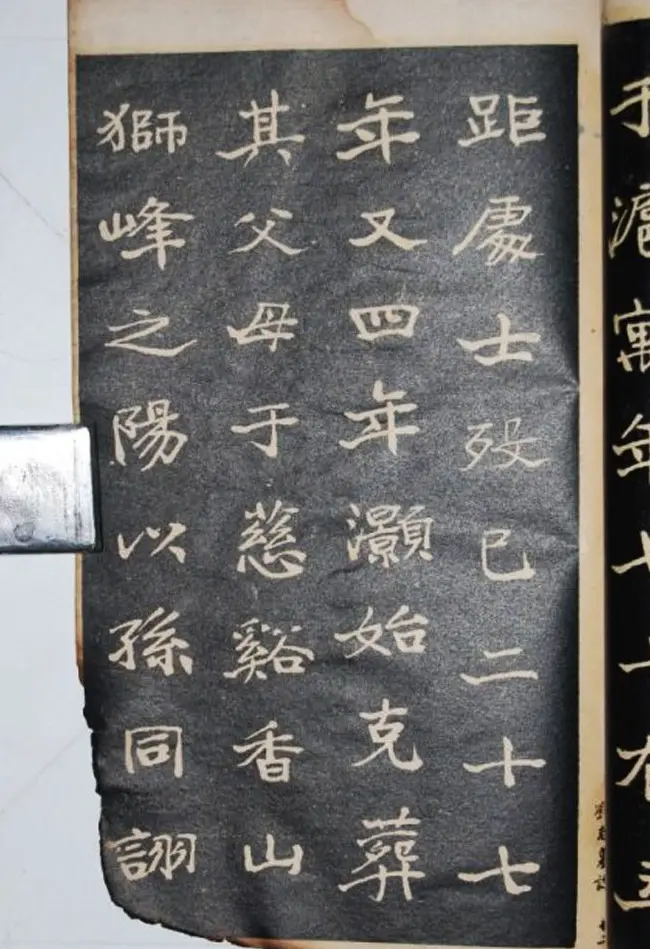 于滬寓年七十有五
距處士歿已二十七
年又四年灝始克葬
其父母于慈谿香山
獅峰之陽以孫同詡